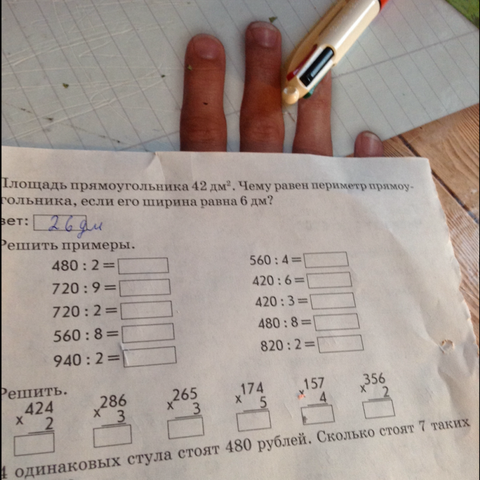 Площадь прямоугольника 42 дм². Чему равен периметр прямоу-
гольника, если его ширина равна 6 дм?
вет: 26 дм
Решить примеры.
480 : 2 = 560 : 4 =
720 : 9 = 420 : 6 =
720 : 2 = 420 : 3 =
560 : 8 = 480 : 8 =
940 : 2 = 820 : 2 =
Решить.
424 286 265 174 157 356
x 2 x 3 x 3 x 5 x 4 x 2
4 одинаковых стула стоят 480 рублей. Сколько стоят 7 таких